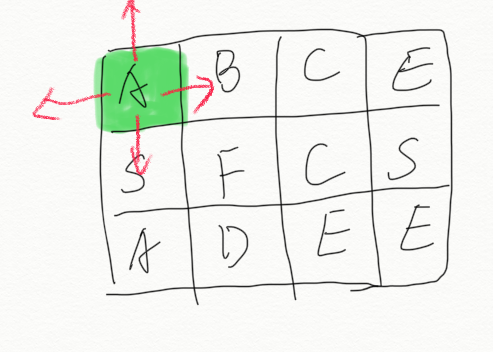 A B C E
S F C S
A D E E